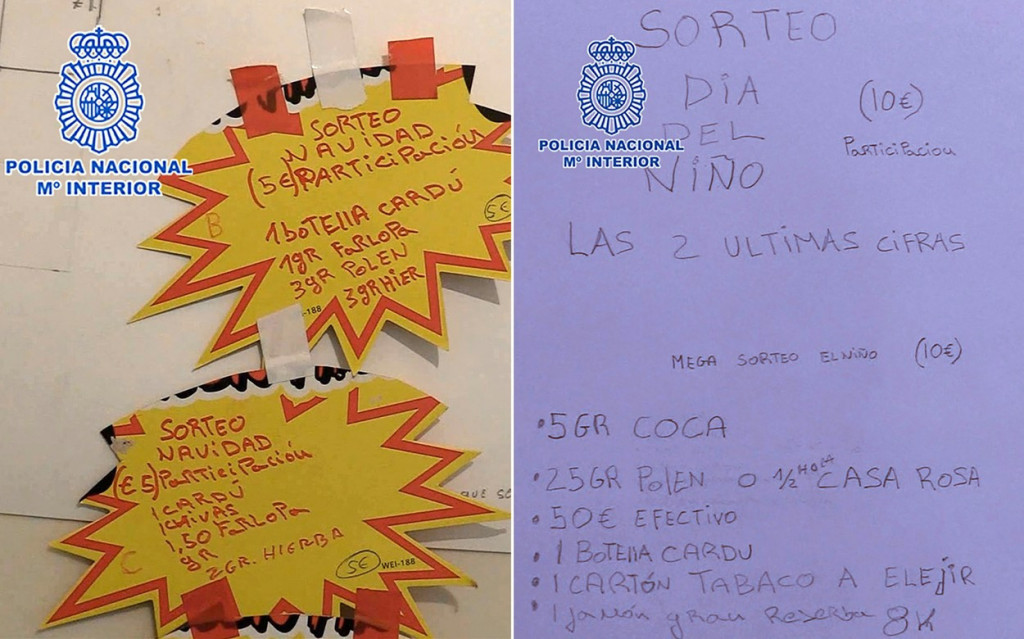 POLICIA NACIONAL
Mº INTERIOR
SORTEO
NAVIDAD
(5€) PARTICIPACIÓN
B
5€
1 BOTELLA CARDÚ
1gR FARLOPA
3gR POLEN
3gR HIER
-188
SORTEO
NAVIDAD
(€5) PARTICIPACIÓN
1 CARDÚ
1 CHIVAS
1,50 FARLOPA
gR
2 GR. HIERBA
C
5€
WEI-188
QUE SO
POLICIA NACIONAL
Mº INTERIOR
SORTEO
DIA
DEL
NIÑO
(10€)
PARTICIPACION
LAS 2 ULTIMAS CIFRAS
MEGA SORTEO EL NIÑO (10€)
• 5 GR COCA
• 25 GR POLEN O 1/2 HOLA CASA ROSA
• 50€ EFECTIVO
• 1 BOTELLA CARDU
• 1 CARTÓN TABACO A ELEJIR
• 1 Jamón gran Reserba 8K